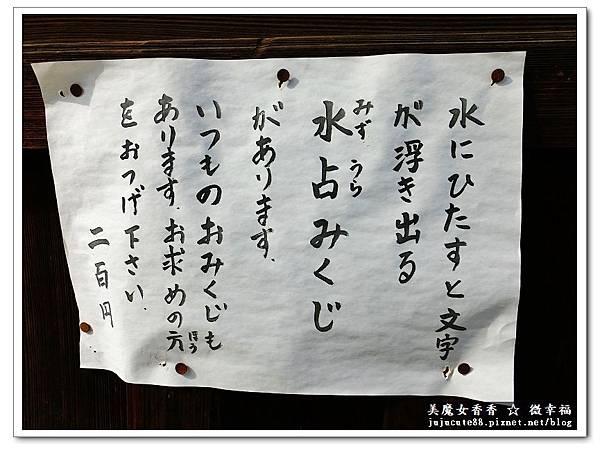 水にひたすと文字
が浮き出る
みず うら
水占みくじ
があります.
いつものおみくじも
あります.お求めの方
ほう
をおつげ下さい.
二百円
美魔女香香 ☆ 微幸福
jujucute88.pixnet.net/blog